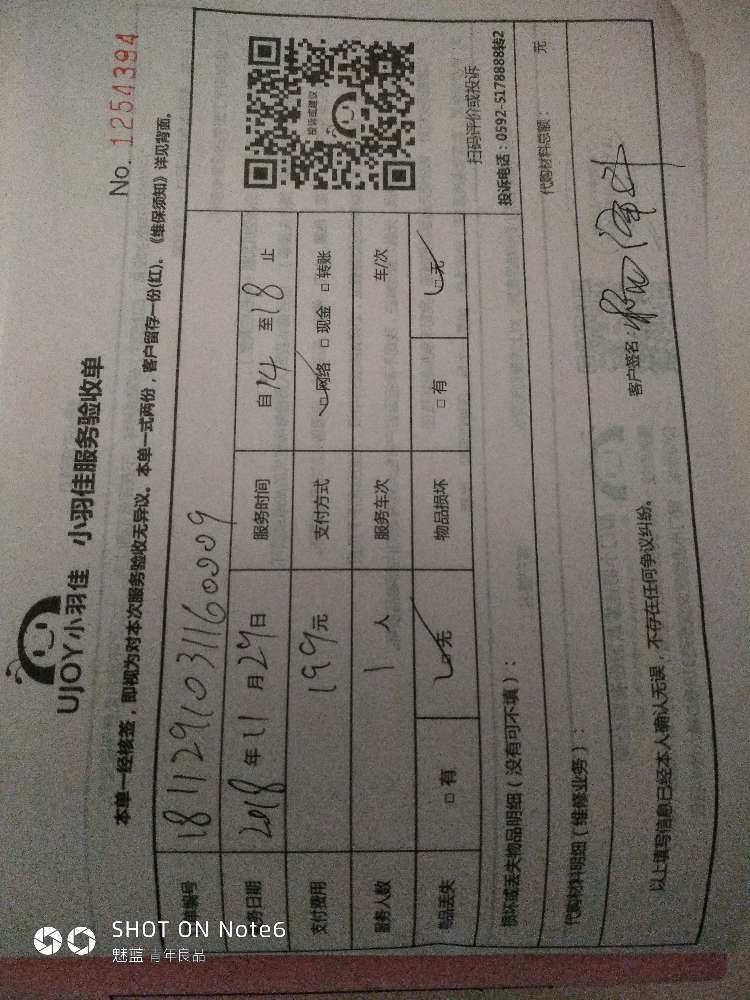 No. 1254394
UJOY小羽佳 小羽佳服务验收单
本单一经核签，即视为对本次服务验收无异议。本单一式两份，客户留存一份(红)。《维保须知》详见背面。
单编号 181129103116000009
务日期 2018年11月29日 服务时间 自14至18止
支付费用 199元 支付方式 □网络 □现金 □转账
服务人数 1人 服务车次 车/次
物品丢失 □有 □无 物品损坏 □有 □无
投诉或建议
扫码评价或投诉
投诉电话：0592-5178888转2
损坏或丢失物品明细（没有可不填）：
代购材料明细（维修业务）： 代购材料总额： 元
以上填写信息已经本人确认无误，不存在任何争议纠纷。 客户签名：
SHOT ON Note6
魅蓝 青年良品